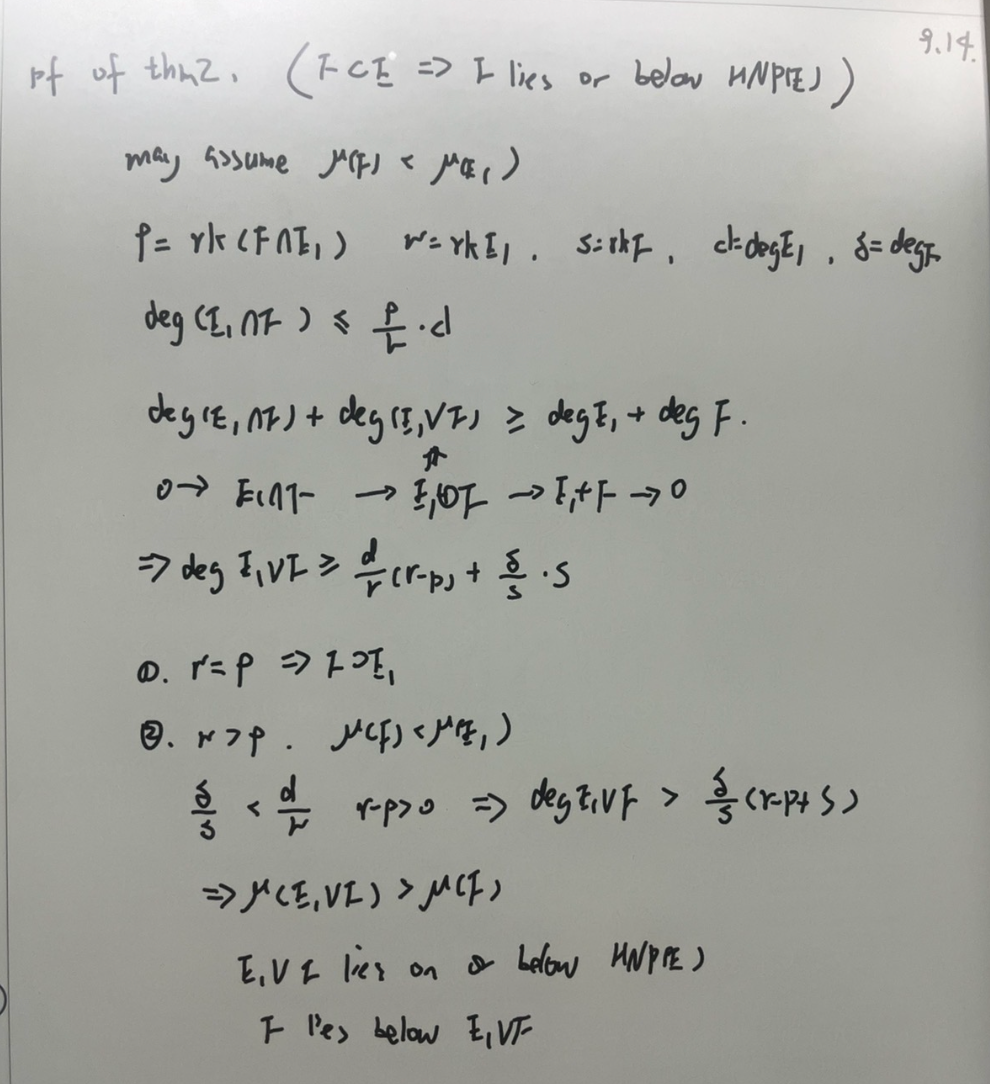 9.14.
pf of thm2. (F⊂E => F lies or below HNP(E))
may assume μ(F) < μ(E₁)
ρ = rk(F∩E₁) r=rkE₁. s=rkF, d=degE₁, δ=degF
deg(E₁∩F) ≤ ρ/r · d
deg(E₁∩F) + deg(E₁∨F) ≥ degE₁ + deg F.
⇑
0→ E₁∩F → E₁⊕F → E₁+F → 0
=> deg E₁∨F ≥ d/r (r-ρ) + δ/s · s
①. r=ρ => F⊃E₁
②. r>ρ. μ(F)<μ(E₁)
δ/s < d/r r-ρ>0 => degE₁∨F > δ/s (r-ρ+s)
=> μ(E₁∨F) > μ(F)
E₁∨F lies on or below HNP(E)
F lies below E₁∨F